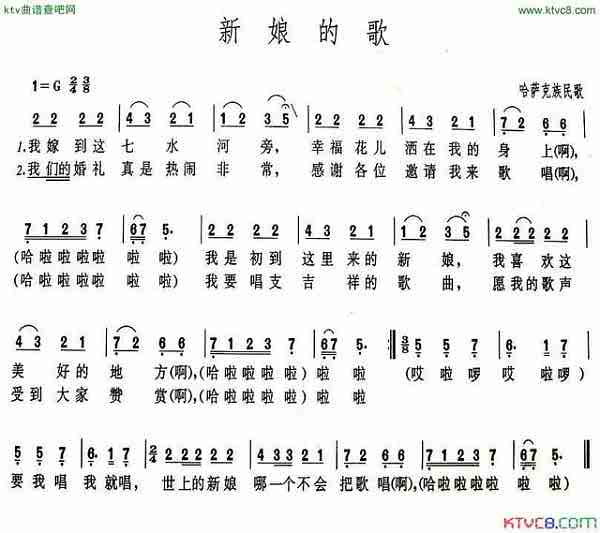 ktv曲谱查吧网
http://www.ktvc8.com
新娘的歌
1=G 2/4 3/8
哈萨克族民歌
2 2 2 2 4 3 2 1 1 2 3 5 2 2 2 2 4 3 2 1 7 2 6 6
1.我嫁到这七水河旁,幸福花儿洒在我的身上(啊),
2.我们的婚礼真是热闹非常,感谢各位邀请我来歌唱(啊),
7 1 2 3 7 67 5. 2 2 2 2 4 3 2 1 1 2 3 2 2 2 2
(哈啦啦啦啦啦啦)我是初到这里来的新娘,我喜欢这
(哈啦啦啦啦啦啦)我要唱支吉祥的歌曲,愿我的歌声
4 3 2 1 7 2 6 6 7 1 2 3 7 67 5. 3/8 2 2 6. 1 7
美好的地方(啊),(哈啦啦啦啦)啦啦(哎啦啰哎啦啰)
受到大家赞赏(啊),(哈啦啦啦啦)啦啦
5 5 7 6. 1 7 2/4 2 2 2 2 4 3 3 2 1 7 2 6 6 7 1 2 3 7 67 5.
要我唱我就唱,世上的新娘哪一个不会把歌唱(啊),(哈啦啦啦啦啦啦)
KTVC8.com